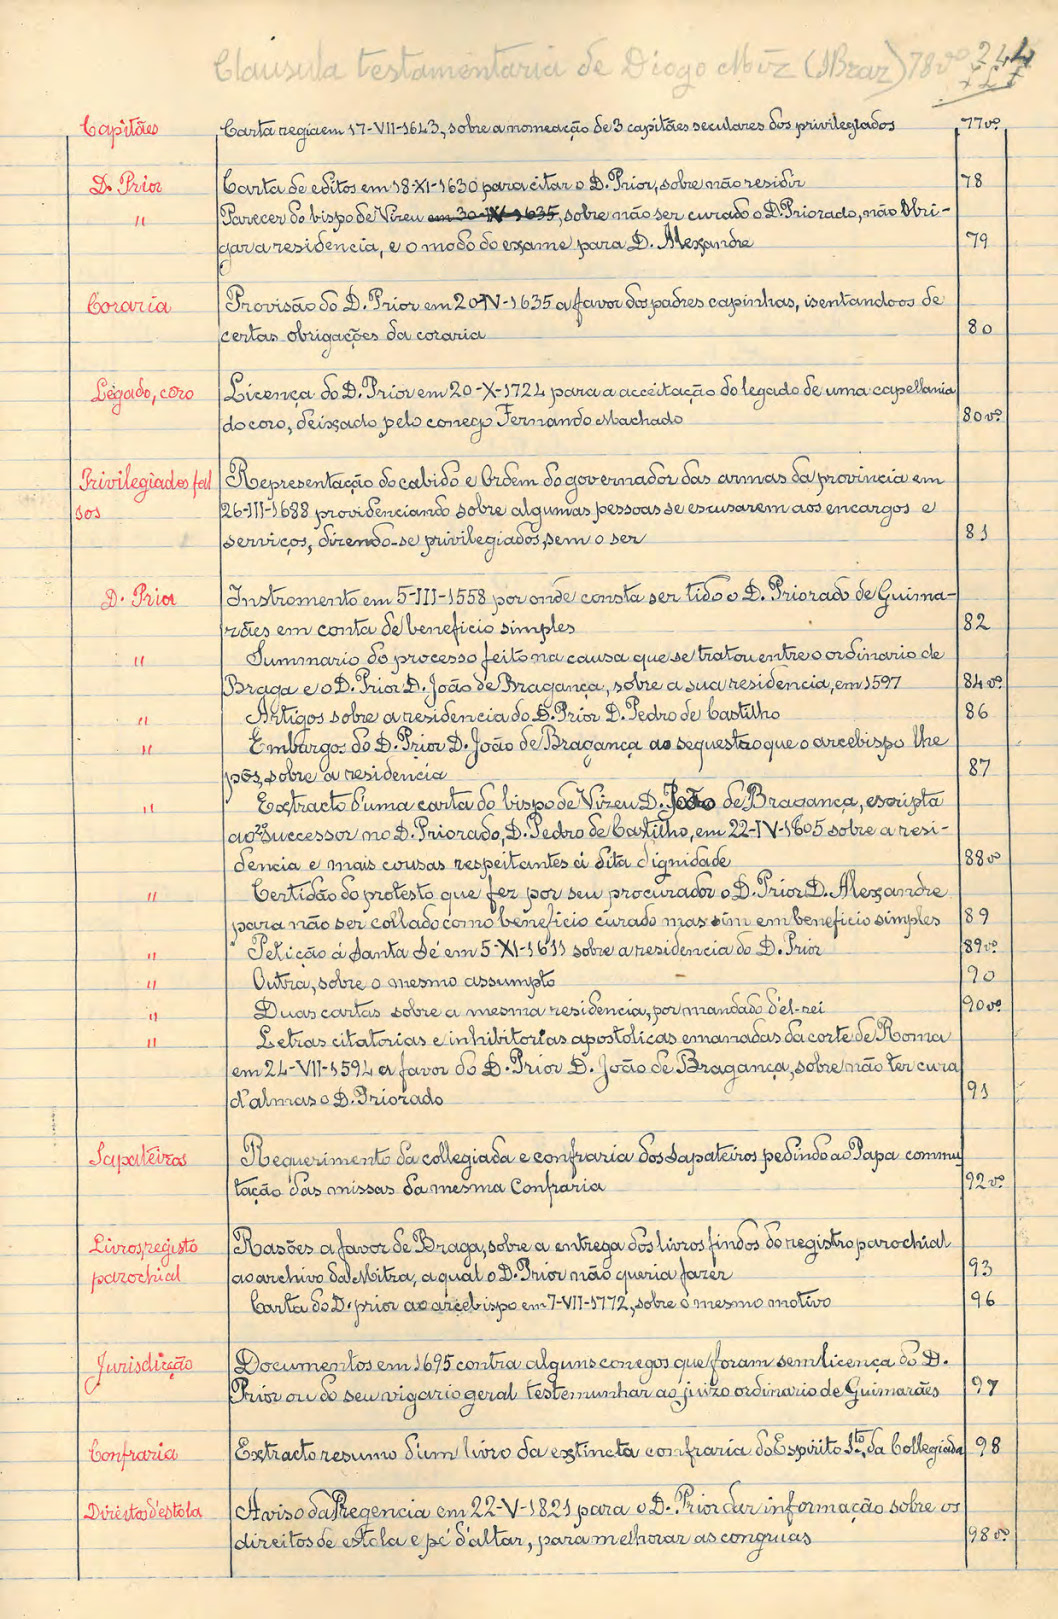 Clausula testamentaria de Diogo Miz (I Braz) 78vº 244
Capitães Carta regia em 17-VII-1643, sobre a nomeação de 3 capitães seculares dos privilegiados 77vº
D. Prior Carta de editos em 18-XI-1630 para citar o D. Prior, sobre não residir 78
" Parecer do bispo de Vizeu em 30-IX-1635, sobre não ser curado o D. Priorado, não obri-
gar a residencia, e o modo do exame para D. Alexandre 79
Coraria Provisão do D. Prior em 20-IV-1635 a favor dos padres capinhas, isentando-os de
certas obrigações da coraria 80
Legado, coro Licença do D. Prior em 20-X-1724 para a acceitação do legado de uma capellania
do coro, deixado pelo conego Fernando Machado 80vº
Privilegiados fal Representação do cabido e Ordem do governador das armas da provincia em
sos 26-III-1688 providenciando sobre algumas pessoas se escusarem aos encargos e
serviços, dizendo-se privilegiados, sem o ser 81
D. Prior Instromento em 5-III-1558 por onde consta ser tido o D. Priorado de Guima-
rães em conta de beneficio simples 82
" Summario do processo feito na causa que se tratou entre o ordinario de
Braga e o D. Prior D. João de Bragança, sobre a sua residencia, em 1597 84vº
" Artigos sobre a residencia do D. Prior D. Pedro de Castilho 86
" Embargos do D. Prior D. João de Bragança ao sequestro que o arcebispo lhe
pôs, sobre a residencia 87
" Extracto d'uma carta do bispo de Vizeu D. João de Bragança, escripta
ao 2º successor no D. Priorado, D. Pedro de Castilho, em 22-IV-1605 sobre a resi-
dencia e mais cousas respeitantes á dita dignidade 88vº
" Certidão do protesto que fez por seu procurador o D. Prior D. Alexandre
para não ser collado como beneficio curado mas sim em beneficio simples 89
" Petição á Santa Sé em 5-XI-1611 sobre a residencia do D. Prior 89vº
" Outra, sobre o mesmo assumpto 90
" Duas cartas sobre a mesma residencia, por mandado d'el-rei 90vº
" Letras citatorias e inhibitorias apostolicas emanadas da corte de Roma
em 24-VII-1594 a favor do D. Prior D. João de Bragança, sobre não ter cura
d'almas o D. Priorado 91
Sapateiros Requerimento da collegiada e confraria dos Sapateiros pedindo ao Papa commu
tação das missas da mesma Confraria 92vº
Livros, registo Rasões a favor de Braga, sobre a entrega dos livros findos do registro parochial
parochial ao archivo da Mitra, a qual o D. Prior não queria fazer 93
Carta do D. prior ao arcebispo em 7-VII-1772, sobre o mesmo motivo 96
Jurisdição Documentos em 1695 contra alguns conegos que foram sem licença do D.
Prior ou do seu vigario geral testemunhar ao juizo ordinario de Guimarães 97
Confraria Extracto resumo d'um livro da extincta confraria do Espirito Sto, da Collegiada 98
Direitos d'estola Aviso da Regencia em 22-V-1821 para o D. Prior dar informação sobre os
direitos de estola e pé d'altar, para melhorar as congruas 98vº